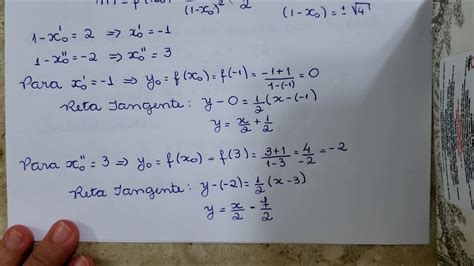 (1-x₀)² 2 (1-x₀) = ±√4
1-x₀' = 2 ⇒ x₀' = -1
1-x₀'' = -2 ⇒ x₀'' = 3
Para x₀' = -1 ⇒ y₀ = f(x₀) = f(-1) = (-1+1)/(1-(-1)) = 0
Reta Tangente: y-0 = 1/2 (x-(-1)
y = x/2 + 1/2
Para x₀'' = 3 ⇒ y₀ = f(x₀) = f(3) = (3+1)/(1-3) = 4/-2 = -2
Reta Tangente: y-(-2) = 1/2 (x-3)
y = x/2 - 7/2